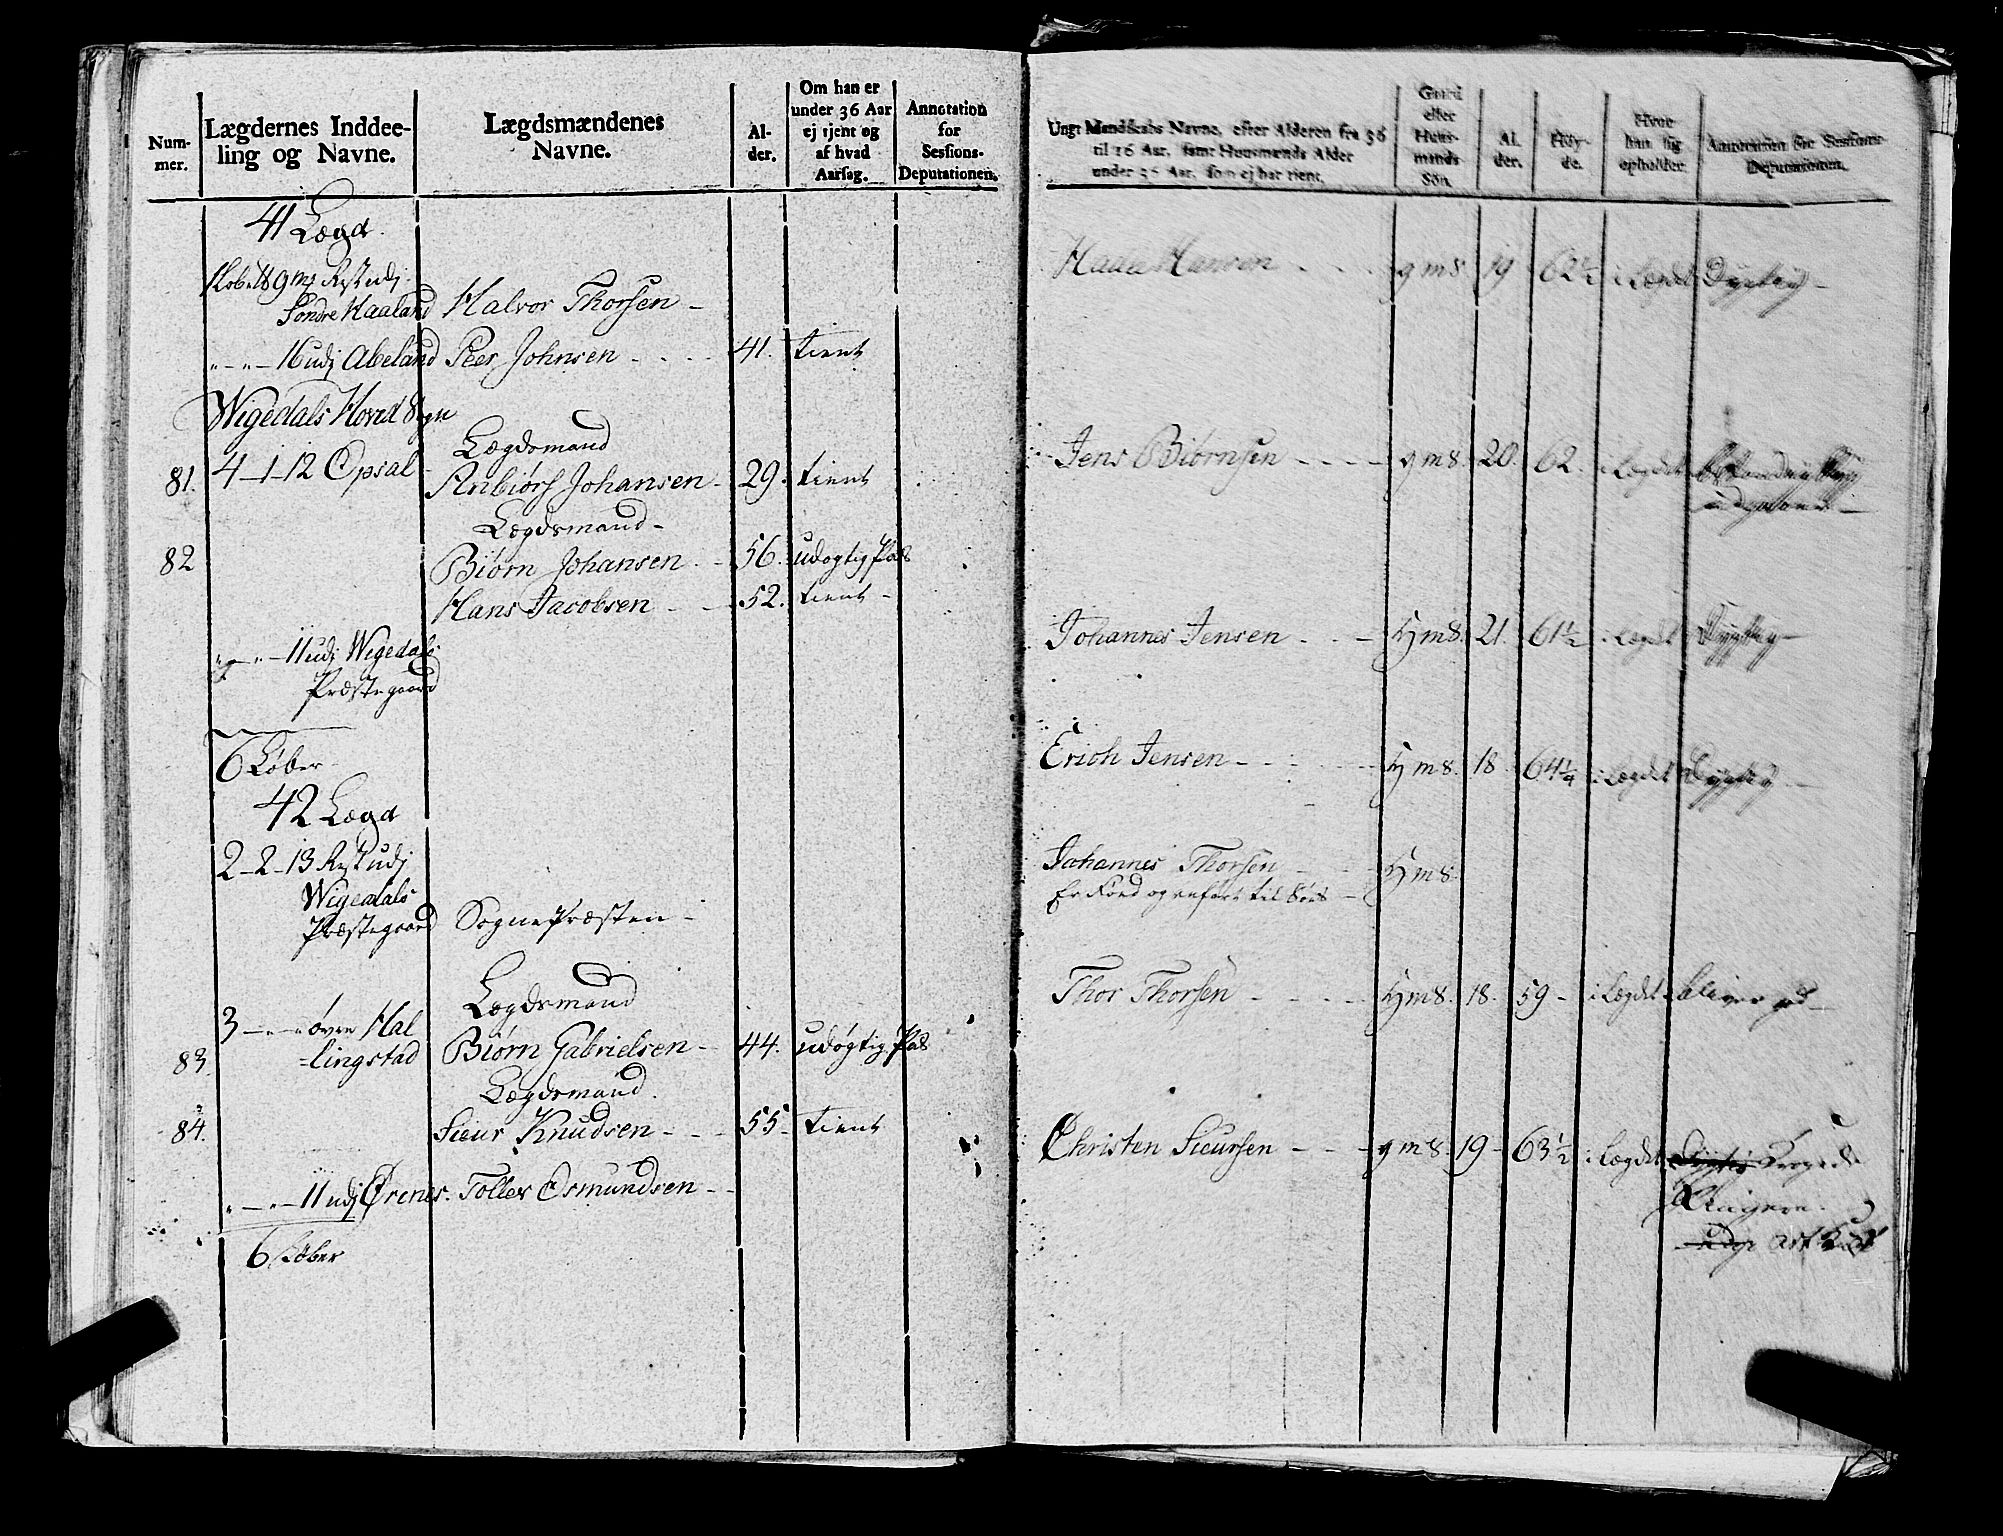 Num-
mer.
Lægdernes Inddee-
ling og Navne.
Lægdsmændenes
Navne.
Al-
der.
Om han er
under 36 Aar
ej tjent og
af hvad
Aarsag.
Annotation
for
Sessions-
Deputationen.
41 Lægd.
Søndre Haaland Halvor Thorsen -
" - " - 16 udj Abeland Peer Johnsen - 41. tient
Wigedals Hoved Sogn
Lægdsmand
81. 4 - 1 - 12 Opsal Anbiørs Johansen - 29. tient
Lægdsmand -
82 Biørn Johansen - 56. udøgtig Pas
Hans Jacobsen - 52. tient -
" - " - 11 udj Wigedals
Præstegaard
6 Køber
42 Lægd
2 - 2 - 13 Rest udj
Wigedals
Præstegaard SognePræsten -
Lægdsmand
3 - " - " øvre Hal
83. -lingstad Biørn Gabrielsen - 44. udøgtig Pas
Lægdsmand.
84. Sieur Knudsen - 55. tient
" - " - 11 udj Ørenes. Tollev Osmundsen -
6 Køber
Ungt Mandskabs Navne, efter Alderen fra 36
til 16 Aar, samt Huusmænds Alder
under 36 Aar, som ej har tient.
Gaard
eller
Huus-
mands
Søn.
Al-
der.
Høy-
de.
Hvor
han sig
opholder.
Annotation for Sessions-
Deputationen.
Hansen - g m s 19 62 1/2 i Lægdet Dygtig -
Jens Biørnsen - g m s. 20. 62. i Lægdet
Johannes Jensen - h m s. 21. 61 1/2 i Lægdet Dygtig -
Erich Jensen - h m s. 18. 64 1/4 i Lægdet Dygtig -
Johannes Thorsen - h m s.
Thor Thorsen - h m s. 18. 59 - i Lægdet
Christen Sieursen - g m s. 19 - 63 1/2 i Lægdet Dygtig